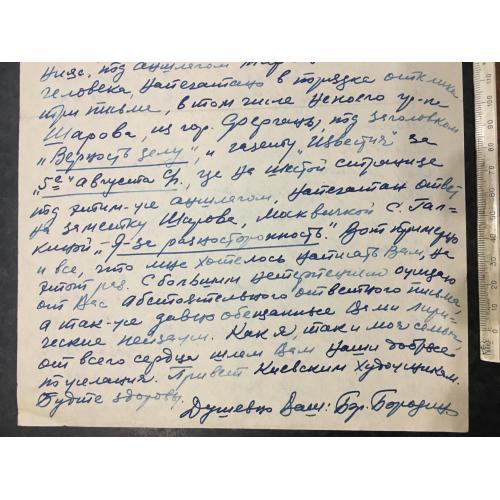 под аншлагом
человека, напечатано в порядке отклика
три письма, в том числе некоего гр-на
Шарова, из гор. Ферганы, под заголовком
„Верность делу", и газету „Известия" за
„5-е" августа с/г., где на шестой странице
под этим-же аншлагом, напечатан ответ
на заметку Шарова, москвичкой С. Гал-
киной – „Я – за разносторонность". Вот примерно
и все, что мне хотелось написать Вам, на
этот раз. С большим нетерпением ожидаю
от Вас обстоятельного ответного письма,
а так-же давно обещанные Вами лири-
ческие пейзажи. Как я, так и моя семья
от всего сердца шлем Вам наши добрые
пожелания. Привет Киевским Художникам.
Будьте здоровы.
Душевно Ваш: Бор. Бородин